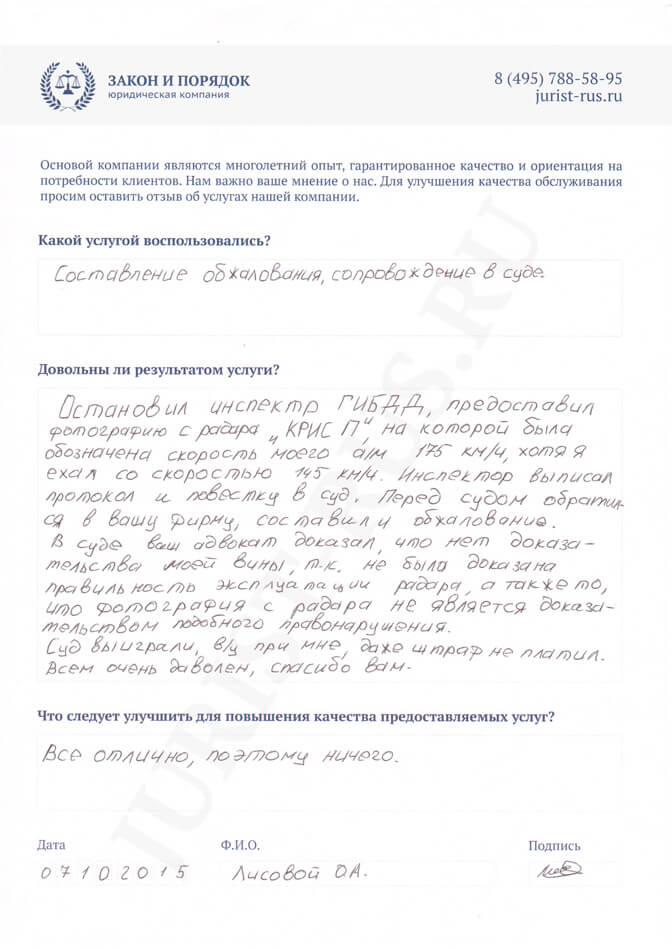 ЗАКОН И ПОРЯДОК
юридическая компания
8 (495) 788-58-95
jurist-rus.ru
Основой компании являются многолетний опыт, гарантированное качество и ориентация на
потребности клиентов. Нам важно ваше мнение о нас. Для улучшения качества обслуживания
просим оставить отзыв об услугах нашей компании.
Какой услугой воспользовались?
Составление обжалования, сопровождение в суде.
Довольны ли результатом услуги?
Остановил инспектр ГИБДД, предоставил
фотографию с радара „КРИС П", на которой была
обозначена скорость моего а/м 175 км/ч, хотя я
ехал со скоростью 145 км/ч. Инспектор выписал
протокол и повестку в суд. Перед судом обратил-
ся в вашу фирму, составили обжалование.
В суде ваш адвокат доказал, что нет доказа-
тельства моей вины, т.к. не была доказана
правильность эксплуатации радара, а также то,
что фотография с радара не является доказа-
тельством подобного правонарушения.
Суд выиграли, в/у при мне, даже штраф не платил.
Всем очень даволен, спасибо вам.
Что следует улучшить для повышения качества предоставляемых услуг?
Все отлично, поэтому ничего.
Дата Ф.И.О. Подпись
07102015 Лисовой О.А.
JURIST-RUS.RU